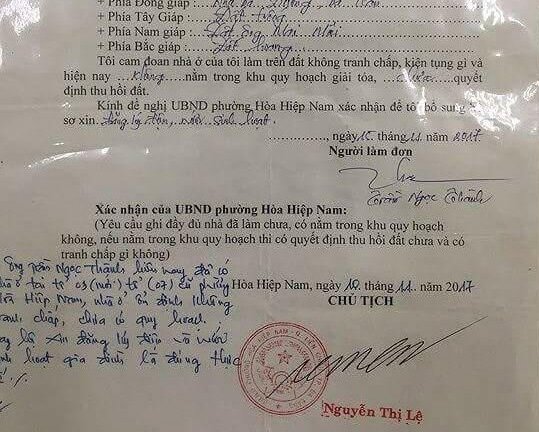 + Phía Đông giáp :
+ Phía Tây Giáp : Đất trống
+ Phía Nam giáp : Đất ông
+ Phía Bắc giáp : Đất
Tôi cam đoan nhà ở của tôi làm trên đất không tranh chấp, kiện tụng gì và
hiện nay không nằm trong khu quy hoạch giải tỏa, chưa quyết
định thu hồi đất.
Kính đề nghị UBND phường Hòa Hiệp Nam xác nhận để tôi bổ sung
sơ xin đăng ký điện, nước sinh hoạt.
, ngày 10. tháng 11 2017
Người làm đơn
Trần Ngọc Thành
Xác nhận của UBND phường Hòa Hiệp Nam:
(Yêu cầu ghi đầy đủ nhà đã làm chưa, có nằm trong khu quy hoạch
không, nếu nằm trong khu quy hoạch thì có quyết định thu hồi đất chưa và có
tranh chấp gì không)
Ông Trần Ngọc Thành hiện nay đã có
nhà ở tại tổ 03 (mới) tổ (07) cũ phường
Hòa Hiệp Nam, nhà ở ổn định không
tranh chấp, chưa có quy hoạch.
nay là xin đăng ký điện và nước
sinh hoạt gia đình là đúng
Hòa Hiệp Nam, ngày 10. tháng 11. năm 2017
CHỦ TỊCH
Nguyễn Thị Lệ